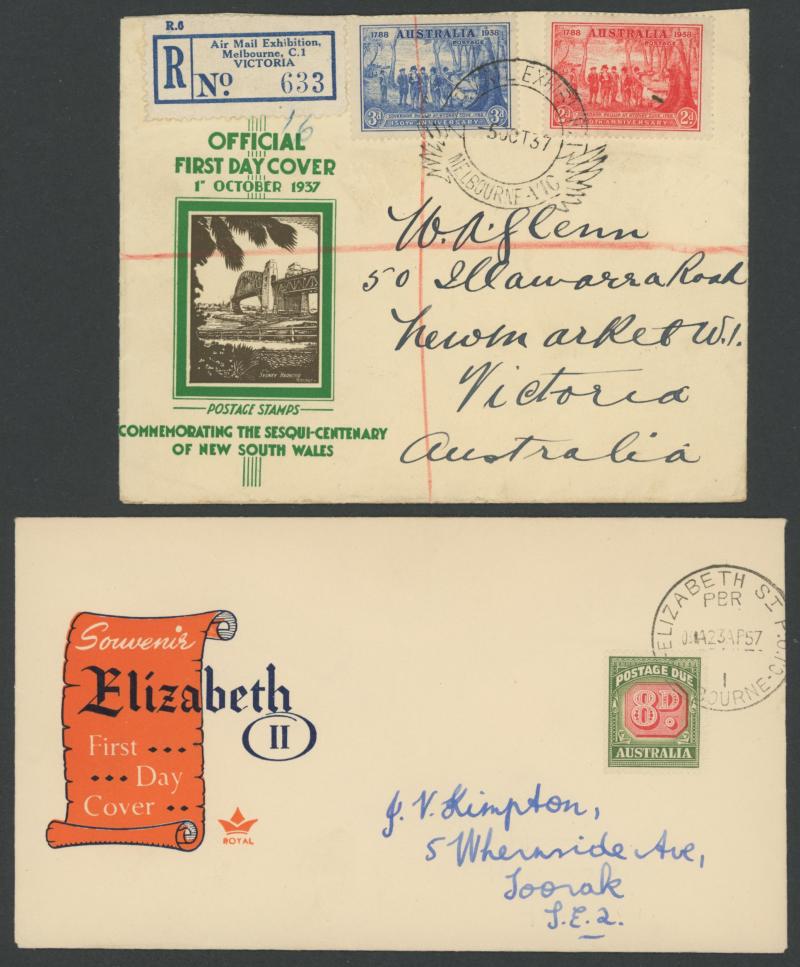 R.6
Air Mail Exhibition,
Melbourne, C.1
VICTORIA
R No 633
16
1788 AUSTRALIA 1938
POSTAGE
3D 150TH ANNIVERSARY 3D
1788 AUSTRALIA 1938
POSTAGE
150TH ANNIVERSARY 2D
5 OCT 37
MELBOURNE-VIC
OFFICIAL
FIRST DAY COVER
1ST OCTOBER 1937
SYDNEY HARBOUR
POSTAGE STAMPS
COMMEMORATING THE SESQUI-CENTENARY
OF NEW SOUTH WALES
W. A. Glenn
50 Illawarra Road
Newmarket W.1.
Victoria
Australia
Souvenir
Elizabeth
II
First ...
... Day
Cover ..
ROYAL
ELIZABETH ST P.O.
PBR
23AP57
1
POSTAGE DUE
8D
AUSTRALIA
J. V. Kimpton,
5 Whernside Ave,
Toorak
S.E.2.